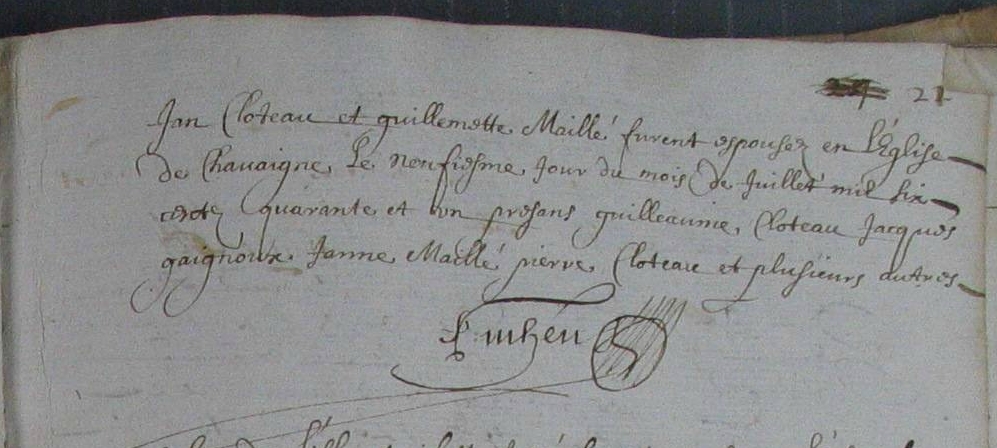 21
Jan Cloteau et guillemette Maillé furent espousez en L'Église
de Chavaigne, Le neufiesme Jour du mois de Juillet mil six
centz quarante et un presans guilleaume Cloteau Jacques
gaignoux Janne Maillé pierre Cloteau et plusieurs autres